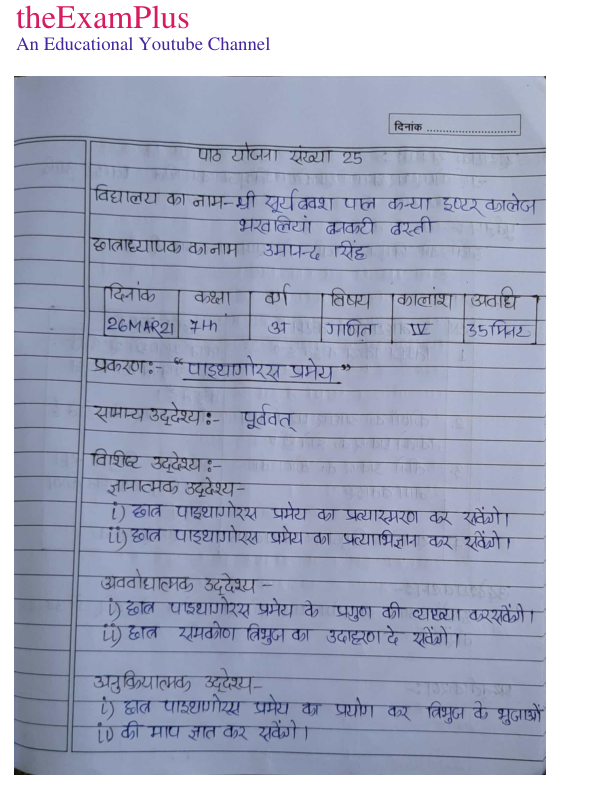 theExamPlus
An Educational Youtube Channel
दिनांक ..............................
पाठ योजना संख्या 25
विद्यालय का नाम- श्री सूर्यबक्श पाल कन्या इण्टर कालेज
बस्ती
छात्राध्यापक का नाम सिंह
दिनांक कक्षा वर्ग विषय कालांश अवधि
26MAR21 7th अ गणित IV 35 मिनट
प्रकरण:- "पाइथागोरस प्रमेय"
सामान्य उद्देश्य:- पूर्ववत्
विशिष्ट उद्देश्य:-
ज्ञानात्मक उद्देश्य-
i) छात्र पाइथागोरस प्रमेय का प्रत्यास्मरण कर सकेंगे।
ii) छात्र पाइथागोरस प्रमेय का प्रत्याभिज्ञान कर सकेंगे।
अवबोधात्मक उद्देश्य -
i) छात्र पाइथागोरस प्रमेय के प्रगुण की व्याख्या कर सकेंगे।
ii) छात्र समकोण त्रिभुज का उदाहरण दे सकेंगे।
अनुक्रियात्मक उद्देश्य-
i) छात्र पाइथागोरस प्रमेय का प्रयोग कर त्रिभुज के भुजाओं
ii) की माप ज्ञात कर सकेंगे।